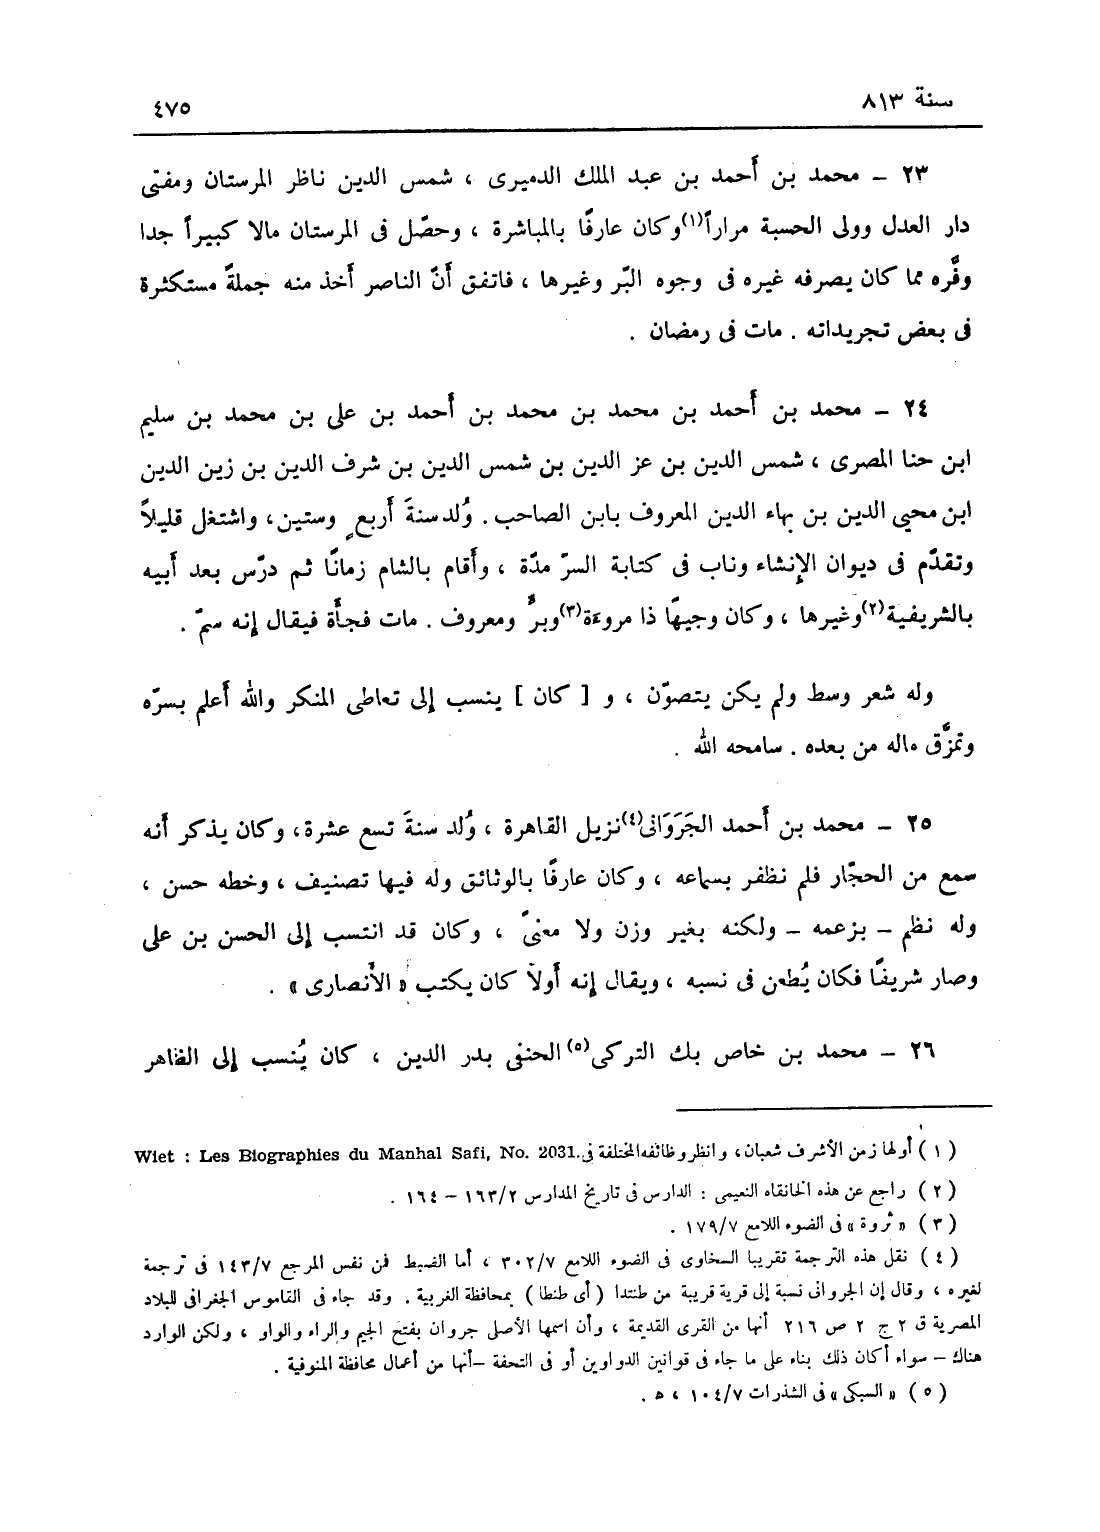 سنة ٨١٣
٤٧٥
٢٣ – محمد بن أحمد بن عبد الملك الدميرى ، شمس الدين ناظر المرستان ومفتى
دار العدل وولى الحسبة مراراً(١) وكان عارفًا بالمباشرة ، وحصّل فى المرستان مالا كبيراً جدا
وفَّره مما كان يصرفه غيره فى وجوه البّر وغيرها ، فاتفق أنّ الناصر أخذ منه جملةً مستكثرة
فى بعض تجريداته . مات فى رمضان .
٢٤ – محمد بن أحمد بن محمد بن محمد بن أحمد بن على بن محمد بن سليم
ابن حنا المصرى ، شمس الدين بن عز الدين بن شمس الدين بن شرف الدين بن زين الدين
ابن محيى الدين بن بهاء الدين المعروف بابن الصاحب . وُلد سنةَ أربعٍ وستين، واشتغل قليلاً
وتقدّم فى ديوان الإنشاء وناب فى كتابة السرّ مدّة ، وأقام بالشام زمانًا ثم درّس بعد أبيه
بالشريفية(٢) وغيرها ، وكان وجيهًا ذا مروءة(٣) وبرٍّ ومعروف . مات فجأة فيقال إنه سمّ .
وله شعر وسط ولم يكن يتصوّن ، و [ كان ] ينسب إلى تعاطى المنكر والله أعلم بسرّه
وتمزَّق ماله من بعده . سامحه الله .
٢٥ – محمد بن أحمد الجَرَوَانى(٤) نزيل القاهرة ، وُلد سنةَ تسع عشرة، وكان يذكر أنه
سمع من الحجّار فلم نظفر بسماعه ، وكان عارفًا بالوثائق وله فيها تصنيف ، وخطه حسن ،
وله نظم – بزعمه – ولكنه بغير وزن ولا معنىً ، وكان قد انتسب إلى الحسن بن على
وصار شريفًا فكان يُطعن فى نسبه ، ويقال إنه أولاً كان يكتب « الأنصارى » .
٢٦ – محمد بن خاص بك التركى(٥) الحنفى بدر الدين ، كان يُنسب إلى الظاهر
( ١ ) أولها زمن الأشرف شعبان، وانظر وظائفه المختلفة فى Wiet : Les Biographies du Manhal Safi, No. 2031.
( ٢ ) راجع عن هذه الخانقاه النعيمى : الدارس فى تاريخ المدارس ١٦٣/٢ – ١٦٤ .
( ٣ ) « ثروة » فى الضوء اللامع ١٧٩/٧ .
( ٤ ) نقل هذه الترجمة تقريبا السخاوى فى الضوء اللامع ٣٠٢/٧ ، أما الضبط فمن نفس المرجع ١٤٣/٧ فى ترجمة
لغيره ، وقال إن الجروانى نسبة إلى قرية قريبة من طنتدا ( أى طنطا ) بمحافظة الغربية . وقد جاء فى القاموس الجغرافى للبلاد
المصرية ق ٢ ج ٢ ص ٢١٦ أنها من القرى القديمة ، وأن اسمها الأصلى جروان بفتح الجيم والراء والواو ، ولكن الوارد
هناك – سواء أكان ذلك بناء على ما جاء فى قوانين الدواوين أو فى التحفة – أنها من أعمال محافظة المنوفية .
( ٥ ) « السبكى » فى الشذرات ١٠٤/٧ ، ﻫ .